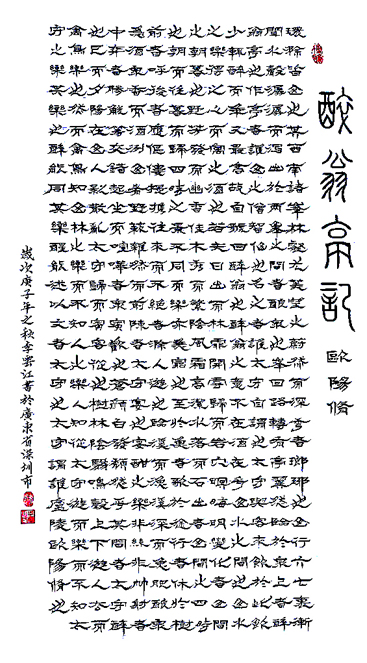 醉翁亭記 歐陽修
環滁皆山也其西南諸峯林壑尤美望之蔚然而深秀者瑯琊也山行六七里漸
聞水聲潺潺而瀉出於兩峯之間者釀泉也峯回路轉有亭翼然臨於泉上者醉
翁亭也作亭者誰山之僧智仙也名之者誰太守自謂也太守與客來飲於此飲
少輒醉而年又最高故自號曰醉翁也醉翁之意不在酒在乎山水之間也山水
之樂得之心而寓之酒也若夫日出而林霏開雲歸而巖穴暝晦明變化者山間
之朝暮也野芳發而幽香佳木秀而繁陰風霜高潔水落而石出者山間之四時
也朝而往暮而歸四時之景不同而樂亦無窮也至於負者歌於途行者休於樹
前者呼後者應傴僂提攜往來而不絕者滁人遊也臨谿而漁谿深而魚肥釀泉
爲酒泉香而酒洌山肴野蔌雜然而前陳者太守宴也宴酣之樂非絲非竹射者
中弈者勝觥籌交錯起坐而諠譁者衆賓歡也蒼顏白髮頹然乎其間者太守醉
也已而夕陽在山人影散亂太守歸而賓客從也樹林陰翳鳴聲上下遊人去而
禽鳥樂也然而禽鳥知山林之樂而不知人之樂人知從太守遊而樂而不知太
守之樂其樂也醉能同其樂醒能述以文者太守也太守謂誰廬陵歐陽修也
歲次庚子年之秋李雲江書於廣東省深圳市